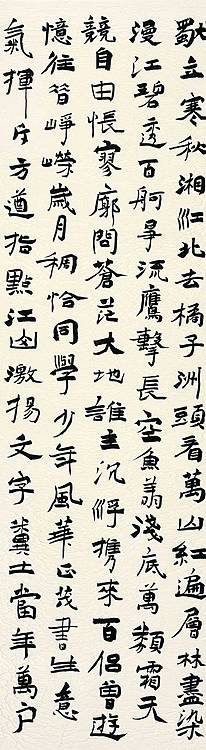 獨立寒秋湘江北去橘子洲頭看萬山紅遍層林盡染
漫江碧透百舸爭流鷹擊長空魚翔淺底萬類霜天
競自由悵寥廓問蒼茫大地誰主沉浮携來百侶曾遊
憶往昔崢嶸歲月稠恰同學少年風華正茂書生意
氣揮斥方遒指點江山激揚文字糞土當年萬户